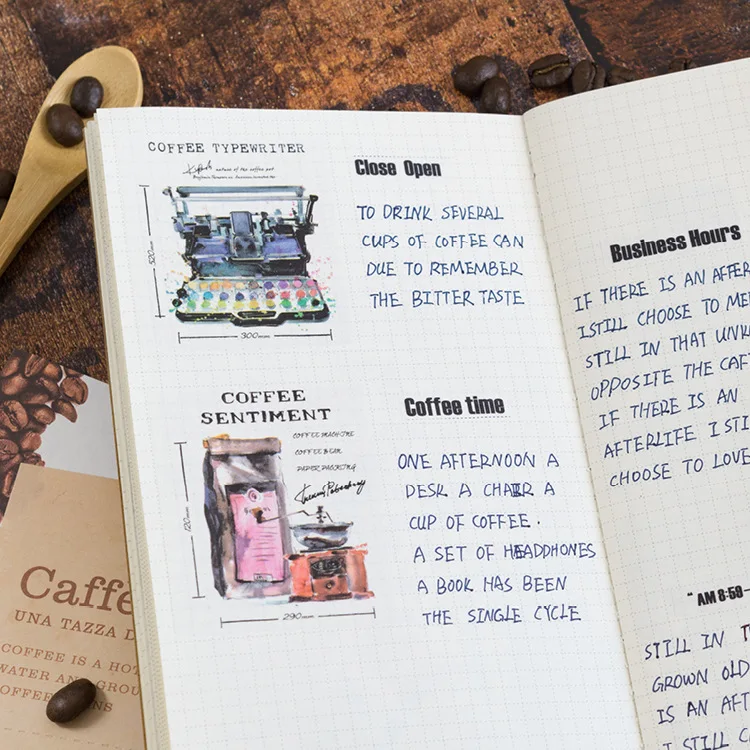 COFFEE TYPEWRITER
nature of the coffee pot
520mm
300mm
Close Open
TO DRINK SEVERAL
CUPS OF COFFEE CAN
DUE TO REMEMBER
THE BITTER TASTE
COFFEE
SENTIMENT
COFFEE MACHINE
COFFEE BEAN
PAPER PACKING
120mm
290mm
Coffee time
ONE AFTERNOON A
DESK A CHAIR A
CUP OF COFFEE.
A SET OF HEADDHONES
A BOOK HAS BEEN
THE SINGLE CYCLE
Business Hours
IF THERE IS AN AFTER
I STILL CHOOSE TO
STILL IN THAT
OPPOSITE THE
IF THERE IS AN
AFTERLIFE I
CHOOSE TO LOVE
" AM 8:59-
STILL IN
GROWN OLD
IS AN
I STILL
Caffe
UNA TAZZA D
COFFEE IS A HOT
WATER AND GROU